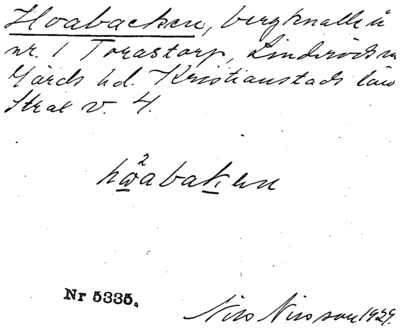 Hoabacken, bergknalle å
nr. 1 Torastorp, Linderöds sn
Gärds hd. Kristianstads län
Strax v. 4.
hωabaken
2
Nr 5335.
Nils Nilsson 1929.